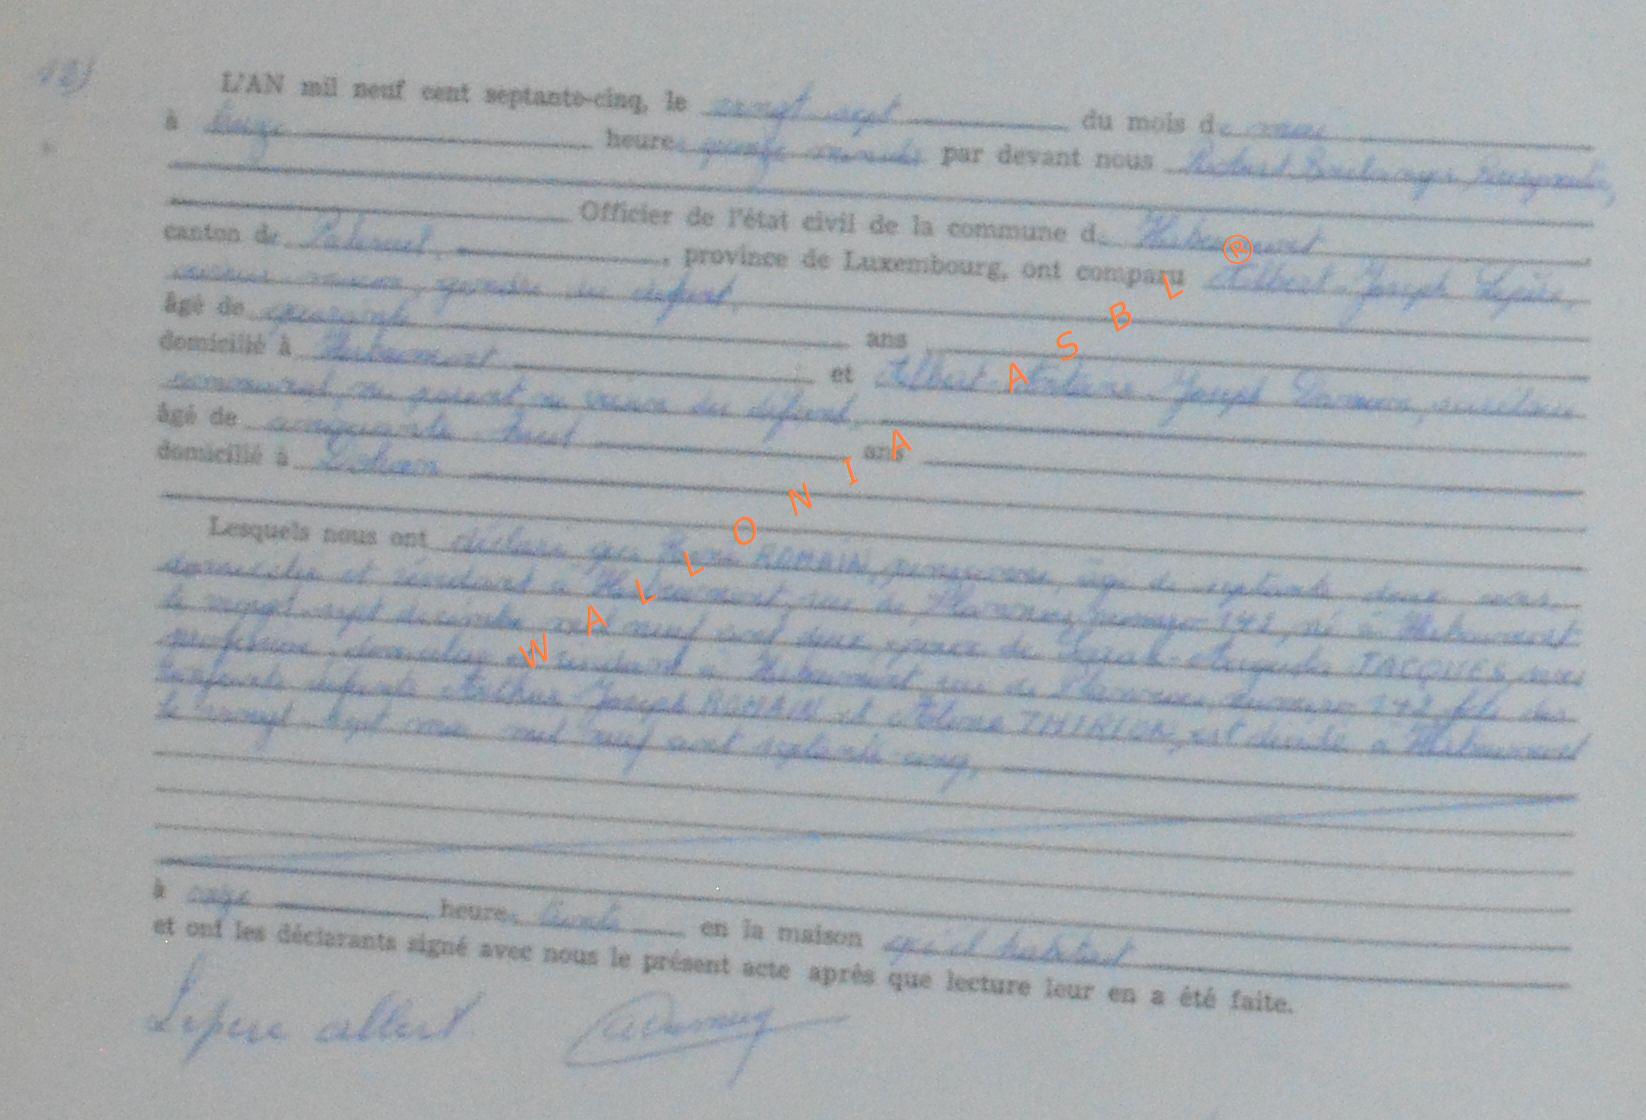 12)
L'AN mil neuf cent septante-cinq, le vingt sept du mois de mai
à treize heures quinze minutes par devant nous Robert Boulanger, Bourgmestre,
Officier de l'état civil de la commune de Herbeumont
canton de Paliseul, , province de Luxembourg, ont comparu Albert-Joseph Lepère,
ouvrier maçon, gendre du défunt,
âgé de quarante ans
domicilié à Herbeumont et Albert-Antoine-Joseph
communal, ni parent ni voisin du défunt,
âgé de cinquante huit ans
domicilié à Dohan
Lesquels nous ont déclaré que ROMAIN, pensionné, âgé de septante deux ans,
domicilié et résidant à Herbeumont, rue de numéro 142, né à Herbeumont
le vingt-sept décembre mil neuf cent deux, époux de Sarah-Auguste JACQUES, sans
profession, domiciliée et résidant à Herbeumont, rue de numéro 142, fils des
conjoints défunts Arthur Joseph ROMAIN et THIRION, est décédé à Herbeumont
le vingt sept mai mil neuf cent septante cinq,
à onze heures trente en la maison qu'il habitait
et ont les déclarants signé avec nous le présent acte après que lecture leur en a été faite.
Lepère albert
WALLONIA ASBL ®